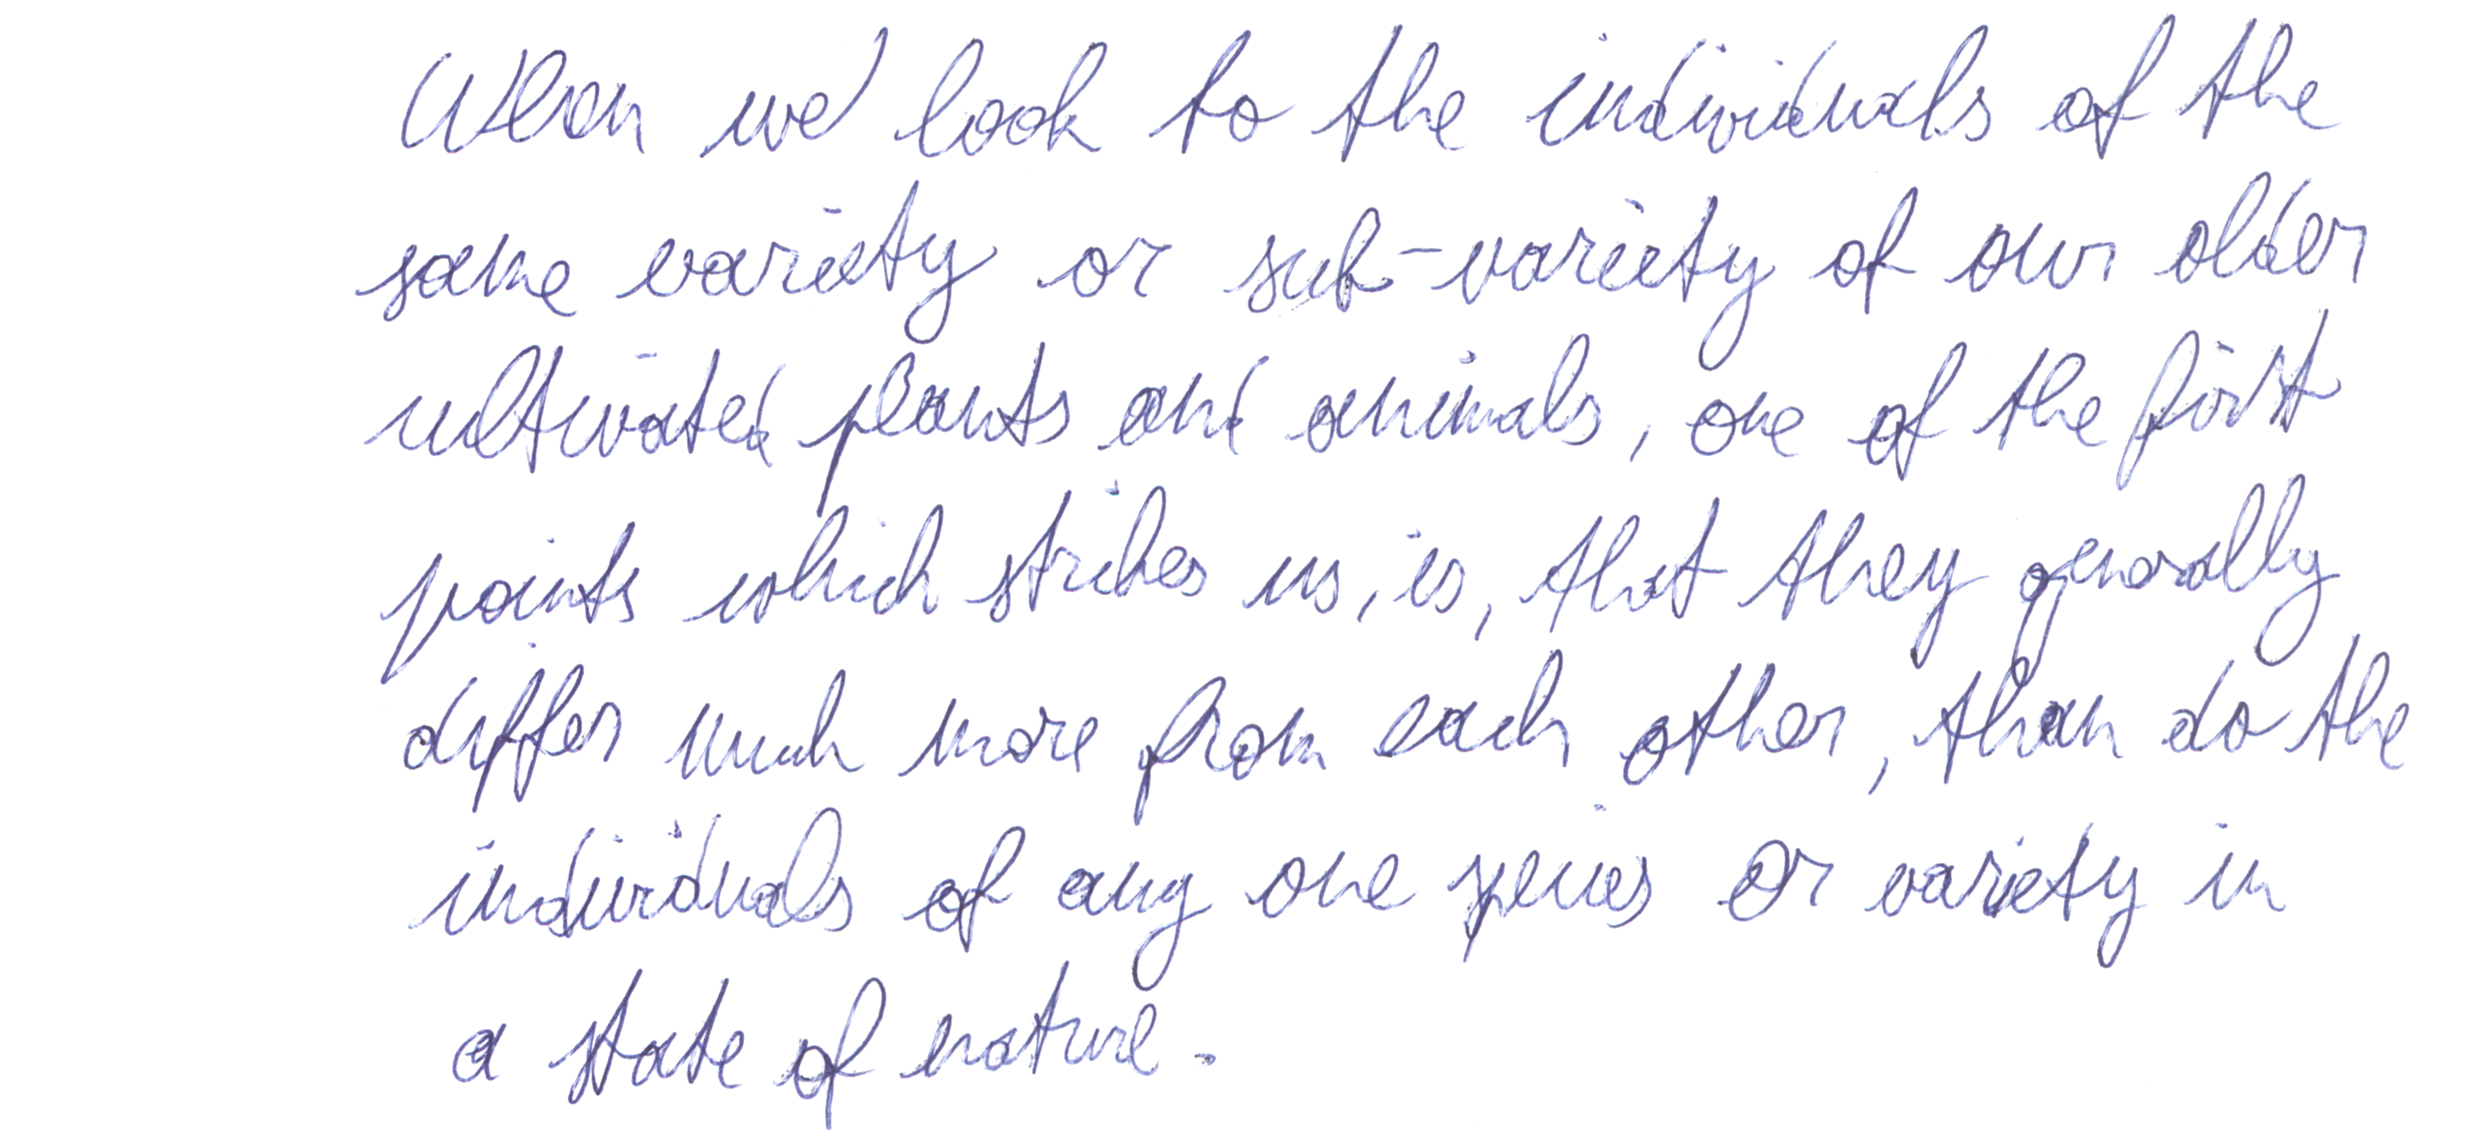 When we look to the individuals of the
same variety or sub-variety of our older
cultivated plants and animals, one of the first
points which strikes us, is, that they generally
differ much more from each other, than do the
individuals of any one species or variety in
a state of nature.